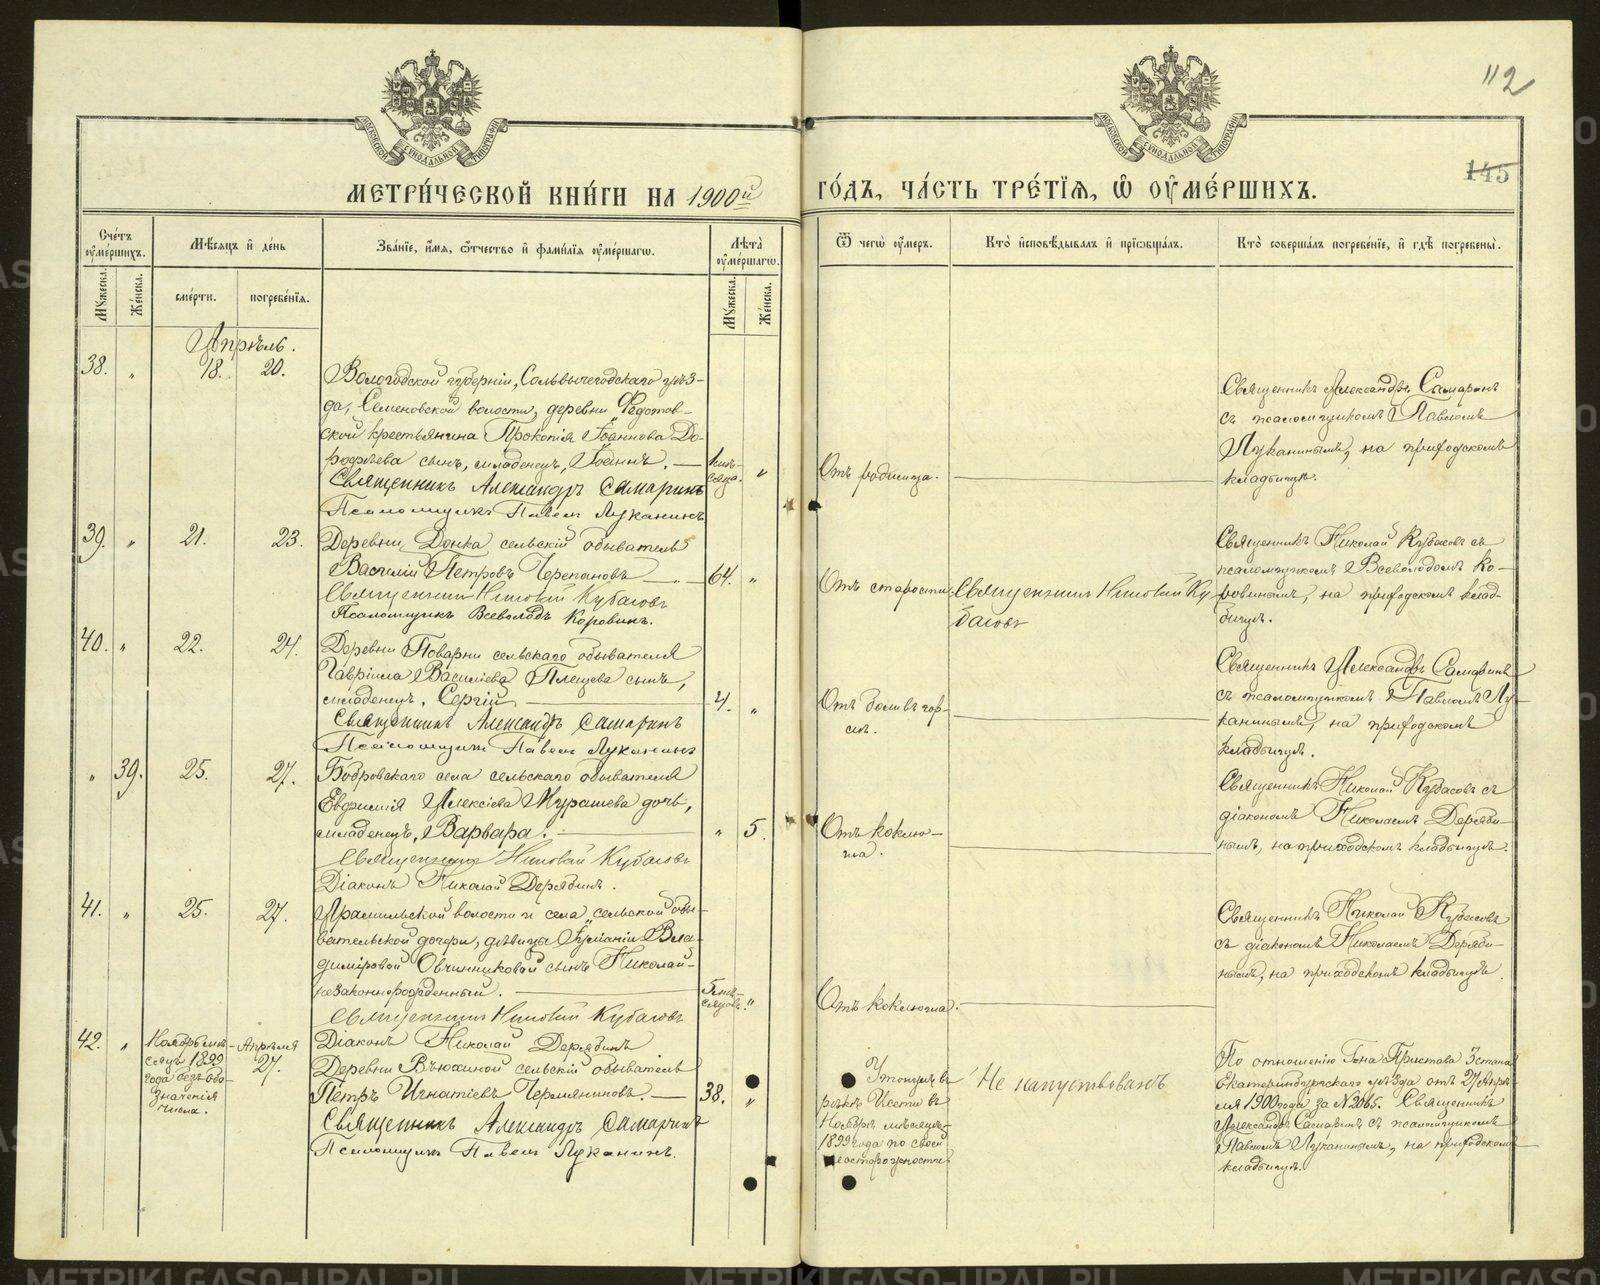 112
145
МОСКОВСКОЙ СѴНОДАЛЬНОЙ ТИПОГРАФІИ
МОСКОВСКОЙ СѴНОДАЛЬНОЙ ТИПОГРАФІИ
МЕТРИ́ЧЕСКОЙ КНИ́ГИ НА 1900й
ГО́ДЪ, ЧА́СТЬ ТРЕ́ТІѦ, Ѡ҆ ОУ҆МЕ́РШИХЪ.
Сче́тъ оу҆ме́ршихъ.
Мѣ́сѧцъ и҆ де́нь
Зва́нїе, и҆́мѧ, ѻ҆́тчество и҆ фами́лїѧ оу҆ме́ршагѡ.
Лѣ́та оу҆ме́ршагѡ.
Ѿ чегѡ̀ оу҆́меръ.
Кто̀ и҆сповѣ́дывалъ и҆ прїѡбща́лъ.
Кто̀ соверша́лъ погребе́нїе, и҆ гдѣ̀ погребены̀.
Мꙋ́жеска.
Же́нска.
сме́рти.
погребе́нїѧ.
Мꙋ́жеска.
Же́нска.
Апрѣль.
38. " 18. 20.
Вологодской губерніи, Сольвычегодскаго уѣз-
да, Семеновской волости, деревни Федотов-
ской крестьянина Прокопія Іоаннова До-
рофѣева сынъ, младенецъ, Іоаннъ.
"
Священникъ Александръ Самаринъ
Псаломщикъ Павелъ Луканинъ
Отъ родимца.
Священникъ Александръ Самаринъ
съ псаломщикомъ Павломъ
Луканинымъ, на приходскомъ
кладбищѣ.
39. " 21. 23.
Деревни сельскій обыватель
Василій Петровъ Черепановъ 64. "
Священникъ Николай Кубасовъ
Псаломщикъ Всеволодъ Коровинъ.
Отъ старости
Священникъ Николай Ку
басовъ
Священникъ Николай Кубасовъ съ
псаломщикомъ Всеволодомъ Ко-
ровинымъ, на приходскомъ клад-
бищѣ.
40. " 22. 24.
Деревни Поварни сельскаго обывателя
Гавріила Василіева Плещева сынъ,
младенецъ, Сергій 4. "
Священникъ Александръ Самаринъ
Псаломщикъ Павелъ Луканинъ
Отъ боли въ гор-
лѣ.
Священникъ Александръ Самаринъ
съ псаломщикомъ Павломъ Лу-
канинымъ, на приходскомъ
кладбищѣ.
" 39. 25. 27.
Бобровскаго села сельскаго обывателя
Евфимія Алексіева Мурашева дочь,
младенецъ, Варвара. " 5.
Священникъ Николай Кубасовъ
Діаконъ Николай Дерябинъ.
Отъ коклю-
ша.
Священникъ Николай Кубасовъ съ
діакономъ Николаемъ Деряби-
нымъ, на приходскомъ кладбищѣ.
41. " 25. 27.
Арамильской волости и села, сельской обы-
вательской дочери, дѣвицы Іуліаніи Вла-
диміровой Овчинниковой сынъ Николай-
незаконнорожденный. 5 мѣ-
сяцовъ. "
Священникъ Николай Кубасовъ
Діаконъ Николай Дерябинъ
Отъ коклюша.
Священникъ Николай Кубасовъ
съ діакономъ Николаемъ Деряби-
нымъ, на приходскомъ кладбищѣ.
42. "
Ноябрѣ мѣ-
сяцѣ 1899
года безъ обо-
значенія
числа.
Апрѣля
27.
Деревни Вьюхиной сельскій обыватель
Петръ Игнатіевъ Чермяниновъ. 38. "
Священникъ Александръ Самаринъ
Псаломщикъ Павелъ Луканинъ.
Утонулъ въ
рѣкѣ Исети въ
Ноябрѣ мѣсяцѣ
1899 года по своей
неосторожности
Не напутствованъ
По отношенію Г-на Пристава 3 стана
Екатеринбургскаго уѣзда отъ 27 Апрѣ-
ля 1900 года за № 2065. Священникъ
Александръ Самаринъ съ псаломщикомъ
Павломъ Луканинымъ, на приходскомъ
кладбищѣ.
METRIKI.GASO-URAL.RU